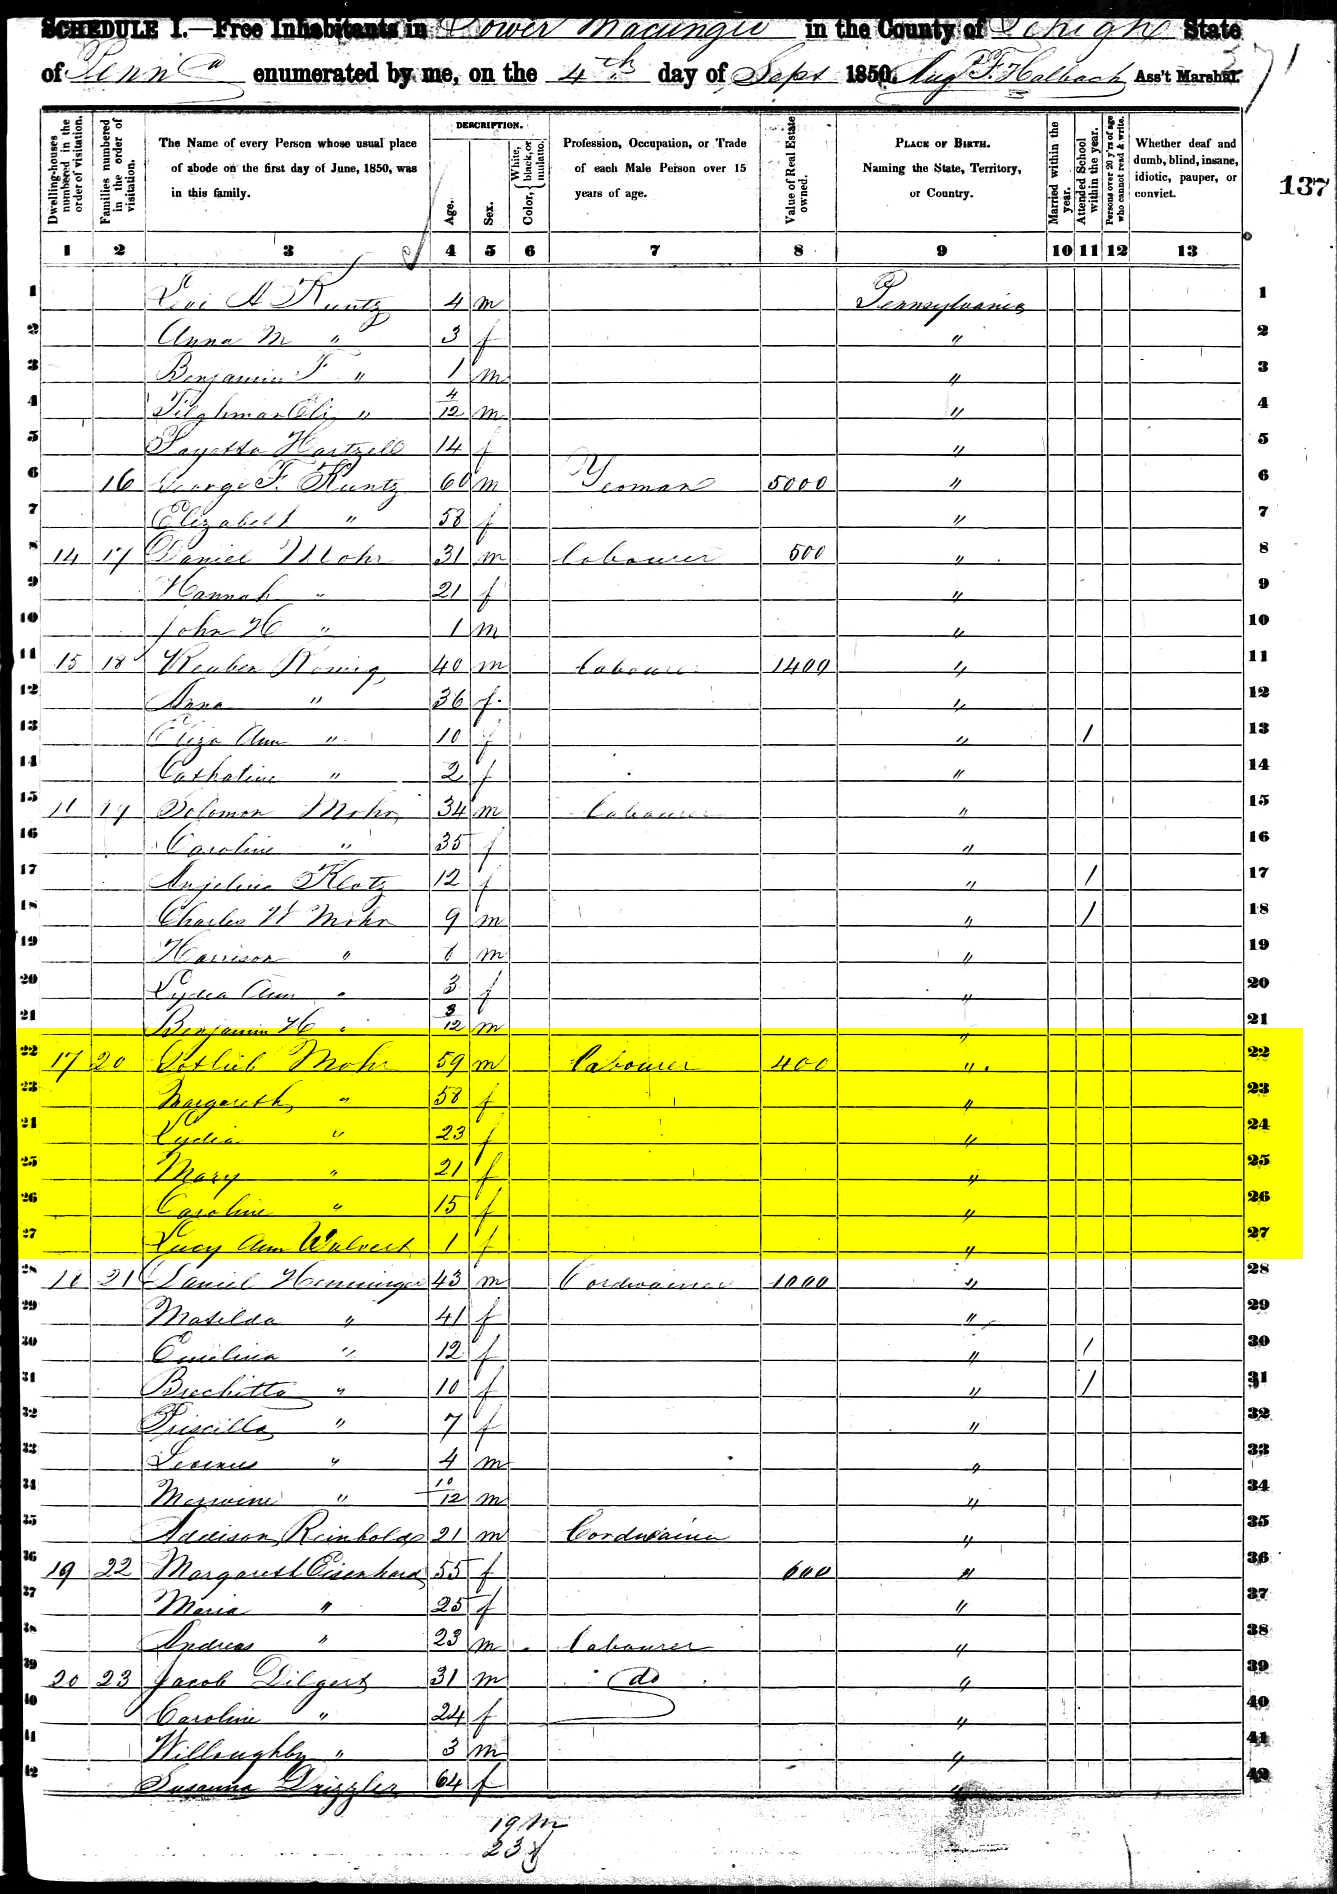 SCHEDULE I.—Free Inhabitants in Lower Macungie in the County of Lehigh State
of Penna enumerated by me, on the 4th day of Sept 1850. Aug. F. Halbach Ass't Marshal.
137
Dwelling-houses numbered in the order of visitation.
Families numbered in the order of visitation.
The Name of every Person whose usual place of abode on the first day of June, 1850, was in this family.
DESCRIPTION.
Age.
Sex.
Color, { White, black, or mulatto.
Profession, Occupation, or Trade of each Male Person over 15 years of age.
Value of Real Estate owned.
PLACE OF BIRTH. Naming the State, Territory, or Country.
Married within the year.
Attended School within the year.
Persons over 20 y'rs of age who cannot read & write.
Whether deaf and dumb, blind, insane, idiotic, pauper, or convict.
1 2 3 4 5 6 7 8 9 10 11 12 13
1 Levi A Kuntz 4 m Pennsylvania 1
2 Anna M " 3 f " 2
3 Benjamin F " 1 m " 3
4 Tilghman Eli " 4/12 m " 4
5 Hartzell 14 f " 5
6 16 George F. Kuntz 60 m Yeoman 5000 " 6
7 Elizabeth " 58 f " 7
8 14 17 Daniel Mohr 31 m Labourer 500 " 8
9 Hannah " 21 f " 9
10 John H " 1 m " 10
11 15 18 Reuben Romig 40 m Labourer 1400 " 11
12 Anna " 36 f " 12
13 Eliza Ann " 10 f " 1 13
14 Catharine " 2 f " 14
15 19 Solomon Mohr 34 m Labourer " 15
16 Caroline " 35 f " 16
17 Anjelina Klotz 12 f " 1 17
18 Charles W Mohr 9 m " 1 18
19 Harrison " 6 m " 19
20 Lydia Ann " 3 f " 20
21 Benjamin H " 3/12 m " 21
22 17 20 Gotlieb Mohr 59 m Labourer 400 " 22
23 Margareth " 58 f " 23
24 Lydia " 23 f " 24
25 Mary " 21 f " 25
26 Caroline " 15 f " 26
27 Lucy Ann Walvert 1 f " 27
28 18 21 Daniel Hemminger 43 m Cordwainer 1000 " 28
29 Matilda " 41 f " 29
30 Emelina " 12 f " 1 30
31 Brechitta " 10 f " 1 31
32 Priscilla " 7 f " 32
33 " 4 m " 33
34 " 10/12 m " 34
35 Addison Reinbold 21 m Cordwainer " 35
36 19 22 Margareth Eisenhard 55 f 600 " 36
37 Maria " 25 f " 37
38 Andreas " 23 m Labourer " 38
39 20 23 Jacob Dilgert 31 m do " 39
40 Caroline " 24 f " 40
41 Willoughby " 3 m " 41
42 Susanna Drizzler 64 f " 42
19 m
23 f